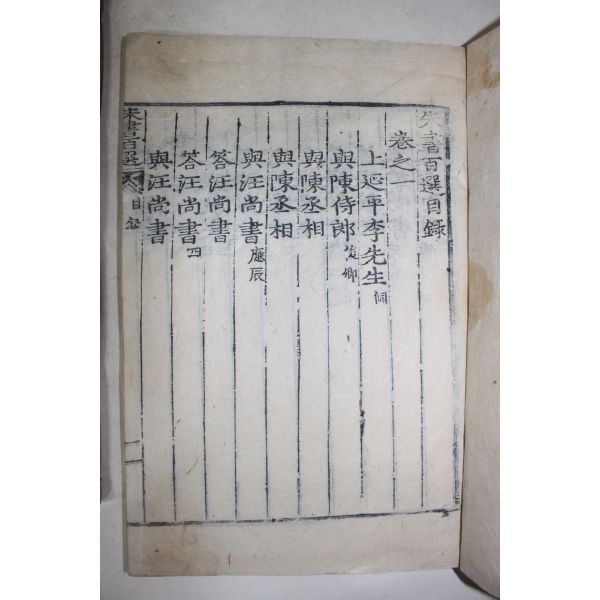 朱書百選目録
卷之一
上延平李先生 侗
與陳侍郎 俊卿
與陳丞相
與陳丞相
與汪尚書 應辰
答汪尚書
答汪尚書 四
與汪尚書
朱書百選 目録
一